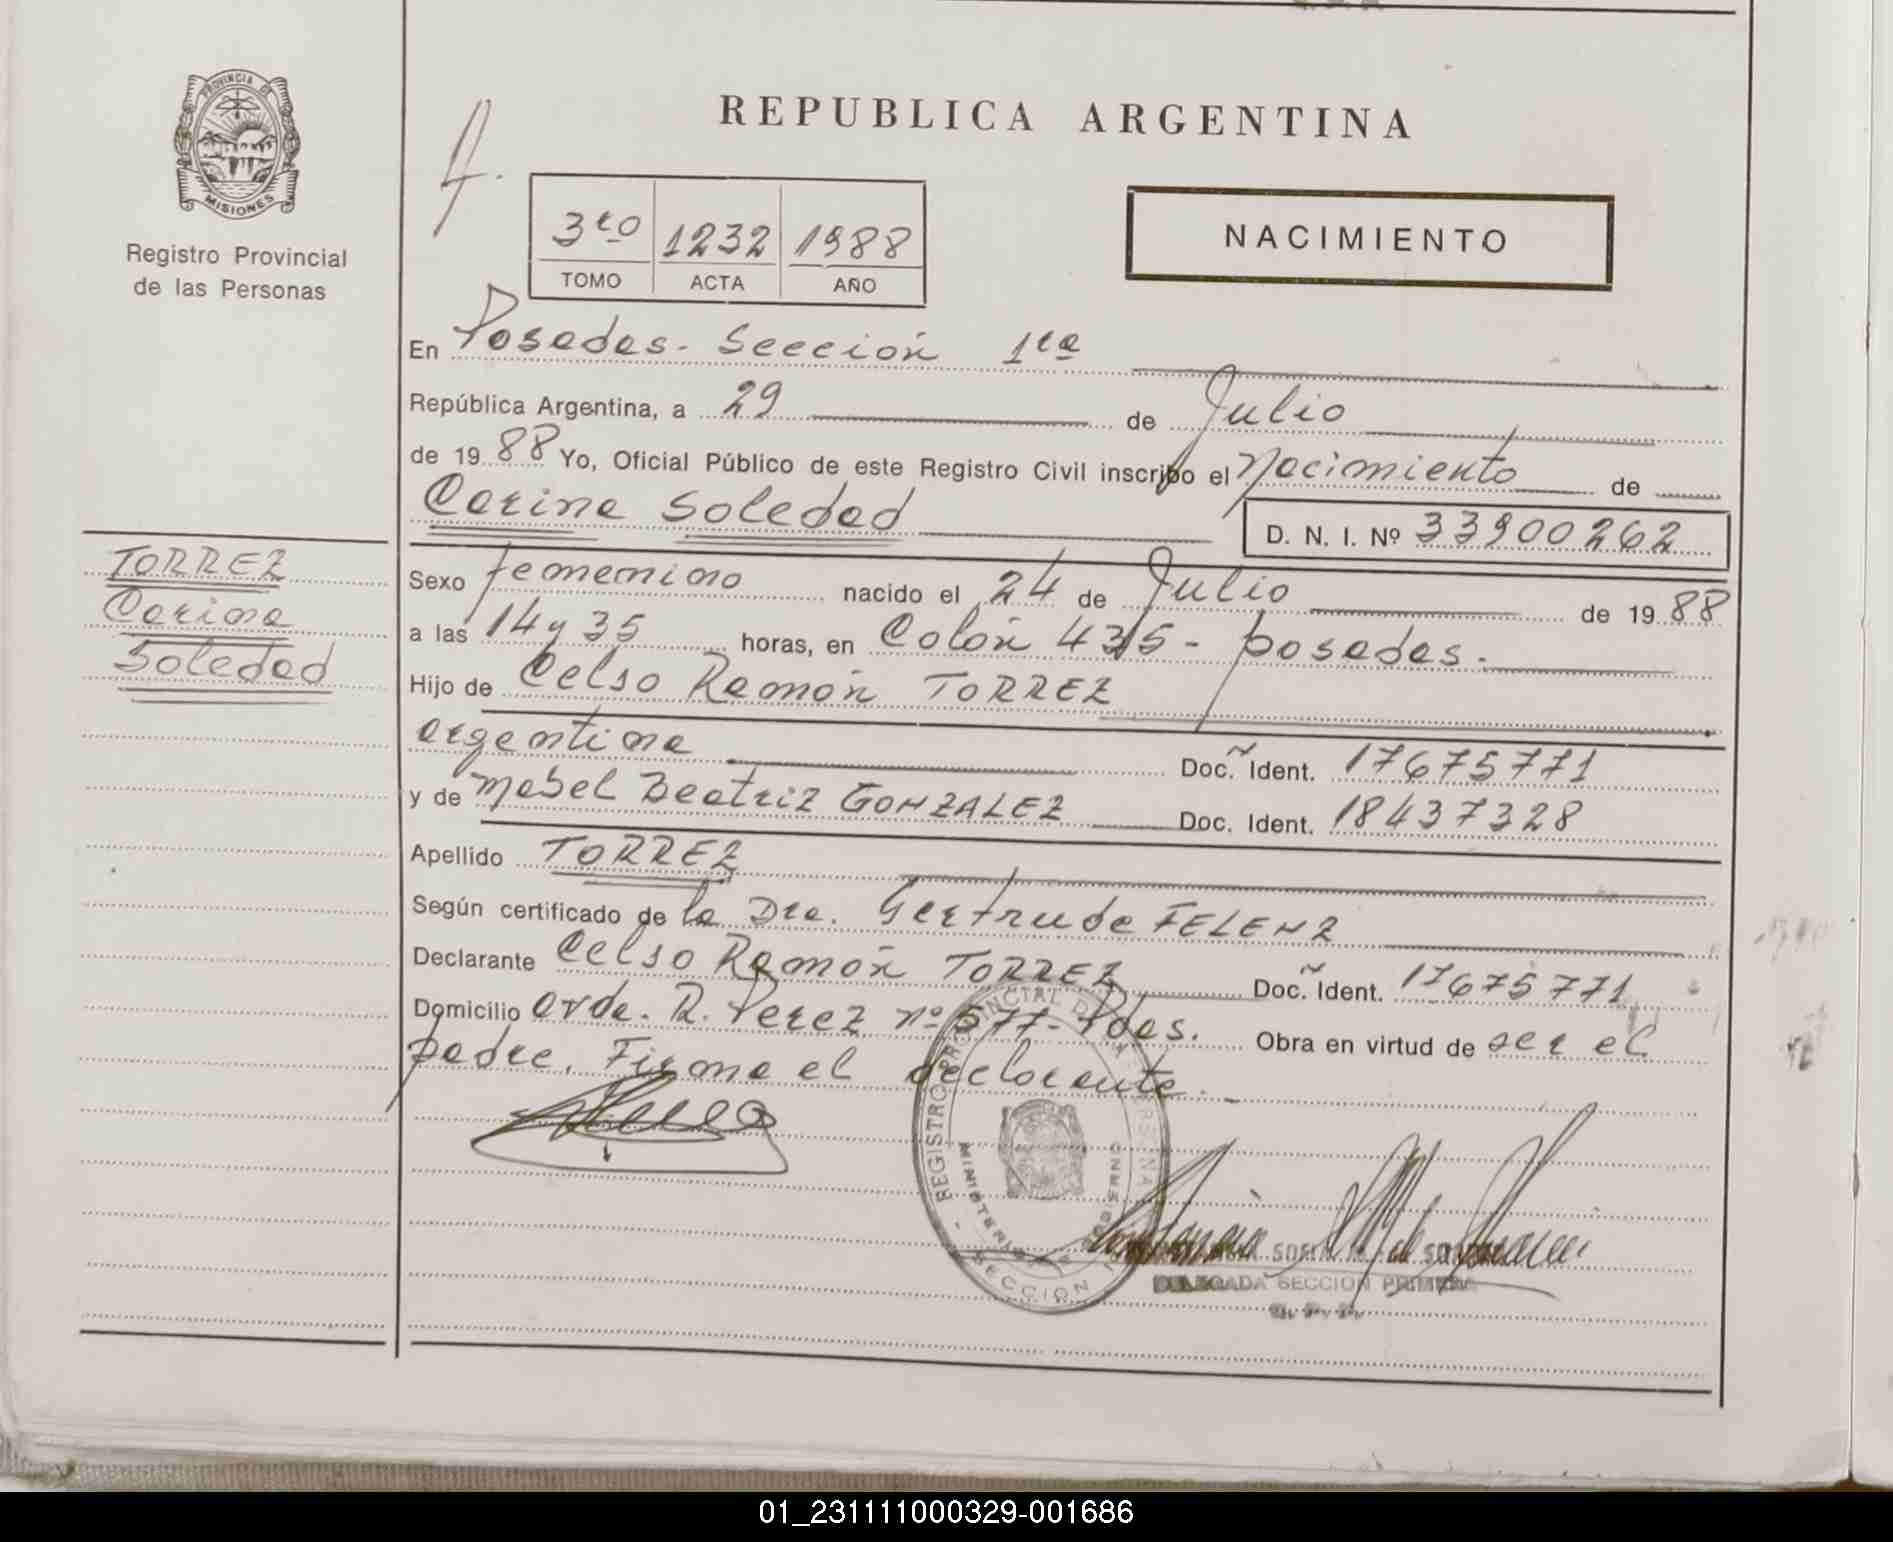 PROVINCIA DE
MISIONES
Registro Provincial
de las Personas
REPUBLICA ARGENTINA
3ro 1232 1988
TOMO ACTA AÑO
NACIMIENTO
En Posadas - Sección 1ra
República Argentina, a 29 de Julio
de 19 88 Yo, Oficial Público de este Registro Civil inscribo el Nacimiento de
Carina Soledad D. N. I. Nº 33900262
TORREZ
Carina
Soledad
Sexo femenino nacido el 24 de Julio de 19 88
a las 14 y 35 horas, en Colón - posadas.
Hijo de Celso Ramón TORREZ
argentina Doc. Ident. 17675771
y de Mabel Beatriz GONZALEZ Doc. Ident. 18437328
Apellido TORREZ
Según certificado de la Dra. Gertrude FELENZ
Declarante Celso Ramón TORREZ Doc. Ident. 17675771
Domicilio avda. R. Perez nº 577 - Pdas. Obra en virtud de ser el
padre. Firma el declarante.
REGISTRO PROVINCIAL DE LAS PERSONAS
MINISTERIO DE GOBIERNO
SECCION
DELEGADA SECCION PRIMERA
01_231111000329-001686